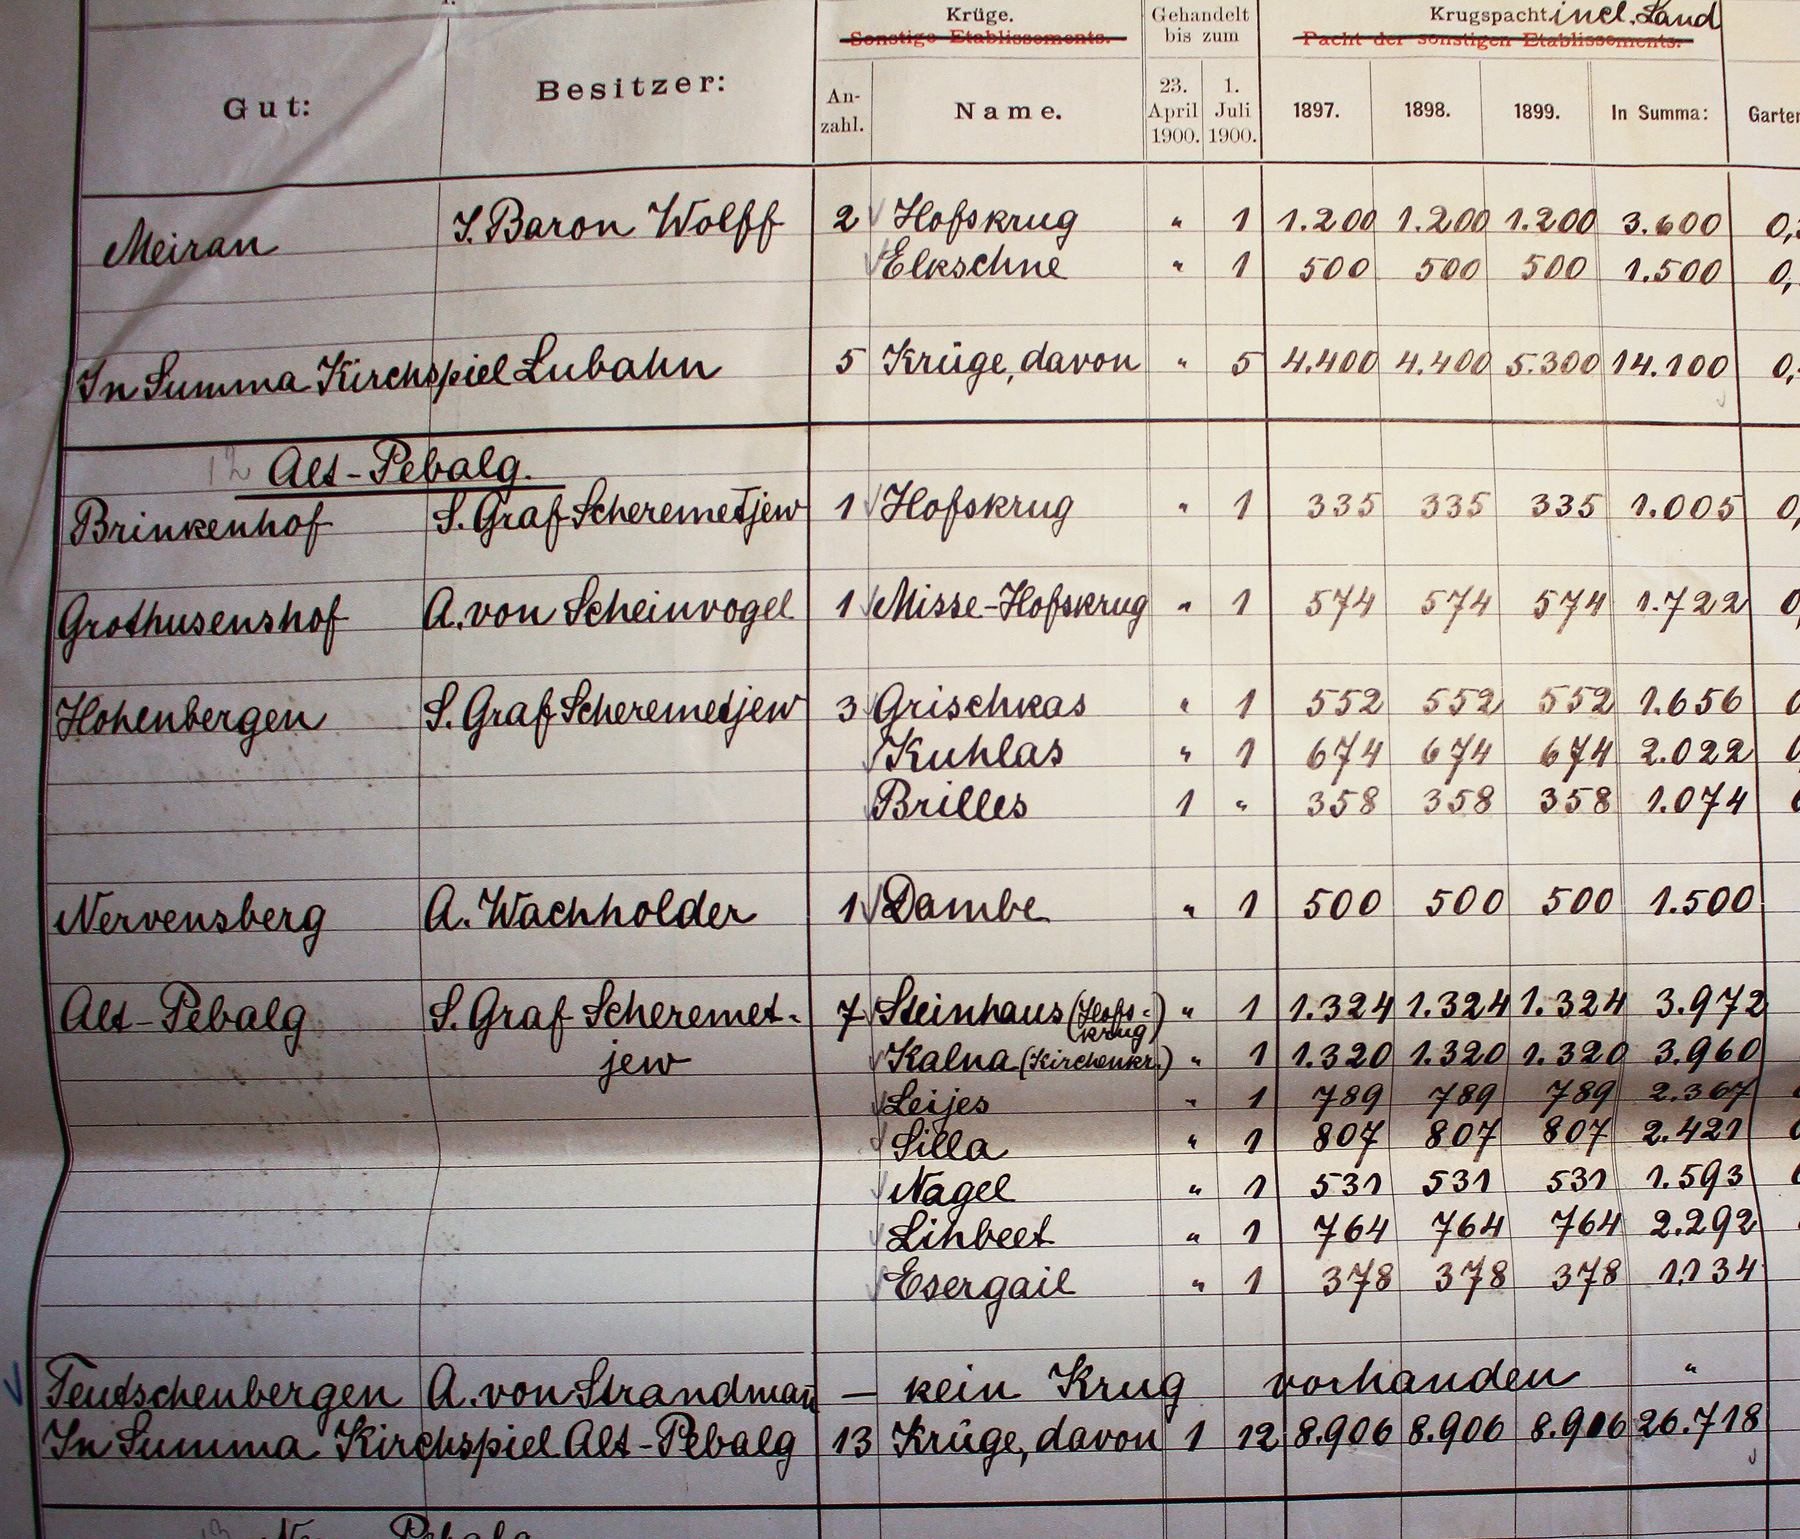 Krüge. Gehandelt Krugspacht incl. Land
Sonstige Etablissements. bis zum Pacht der sonstigen Etablissements.
Gut: Besitzer: An- Name. 23. 1. 1897. 1898. 1899. In Summa: Garten
zahl. April Juli
1900. 1900.
Meiran J. Baron Wolff 2 Hofskrug " 1 1.200 1.200 1.200 3.600 0,
Elkschne " 1 500 500 500 1.500 0,
In Summa Kirchspiel Lubahn 5 Krüge, davon " 5 4.400 4.400 5.300 14.100 0,
12 Alt-Pebalg.
Brinkenhof S. Graf Scheremetjew 1 Hofskrug " 1 335 335 335 1.005 0,
Grothusenshof A. von Scheinvogel 1 Misse-Hofskrug " 1 574 574 574 1.722 0,
Hohenbergen S. Graf Scheremetjew 3 Grischkas " 1 552 552 552 1.656 0
Kuhlas " 1 674 674 674 2.022 0,
Brilles 1 " 358 358 358 1.074
Nervensberg A. Wachholder 1 Dambe " 1 500 500 500 1.500
Alt-Pebalg S. Graf Scheremet- 7 Steinhaus (Hofs- " 1 1.324 1.324 1.324 3.972
krug)
jew Kalna (Kirchenkr.) " 1 1.320 1.320 1.320 3.960
Leijes " 1 789 789 789 2.367
Silla " 1 807 807 807 2.421
Nagel " 1 531 531 531 1.593
Lihbeet " 1 764 764 764 2.292
Esergail " 1 378 378 378 1.134
Teutschenbergen A. von Strandmañ — kein Krug vorhanden "
In Summa Kirchspiel Alt-Pebalg 13 Krüge, davon 1 12 8.906 8.906 8.906 26.718